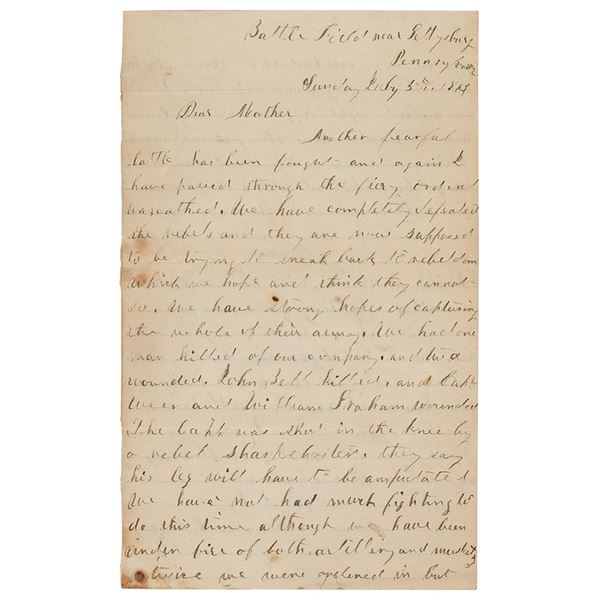 Battle Field near Gettysburg
Sunday July 5th,
Dear Mother
Another fearful
battle has been fought and again I
have passed through the firey ordeal
unscathed. We have completely defeated
the rebels and they are now supposed
to be trying to sneak back to rebeldom
which we hope and think they cannot
do. We have strong hopes of capturing
the whole of their army. We had one
man killed of our company, and two
wounded. John Bell killed, and Capt
and William Graham wounded
The Capt was shot in the knee by
a rebel sharpshoiter. they say
his leg will have to be amputated
We have not had much fighting to
do this time although we have been
under fire of both artillery and
twice we were ordered in but